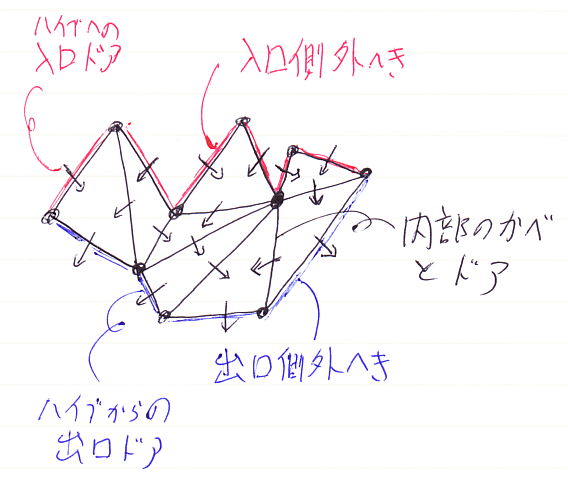 ハイブへの
入口ドア
入口側外へき
内部のかべ
とドア
出口側外へき
ハイブからの
出口ドア